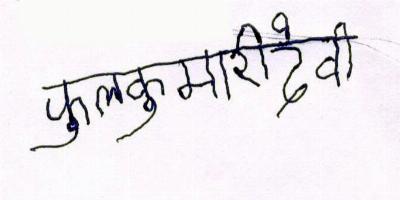 फुलकुमारी देवी